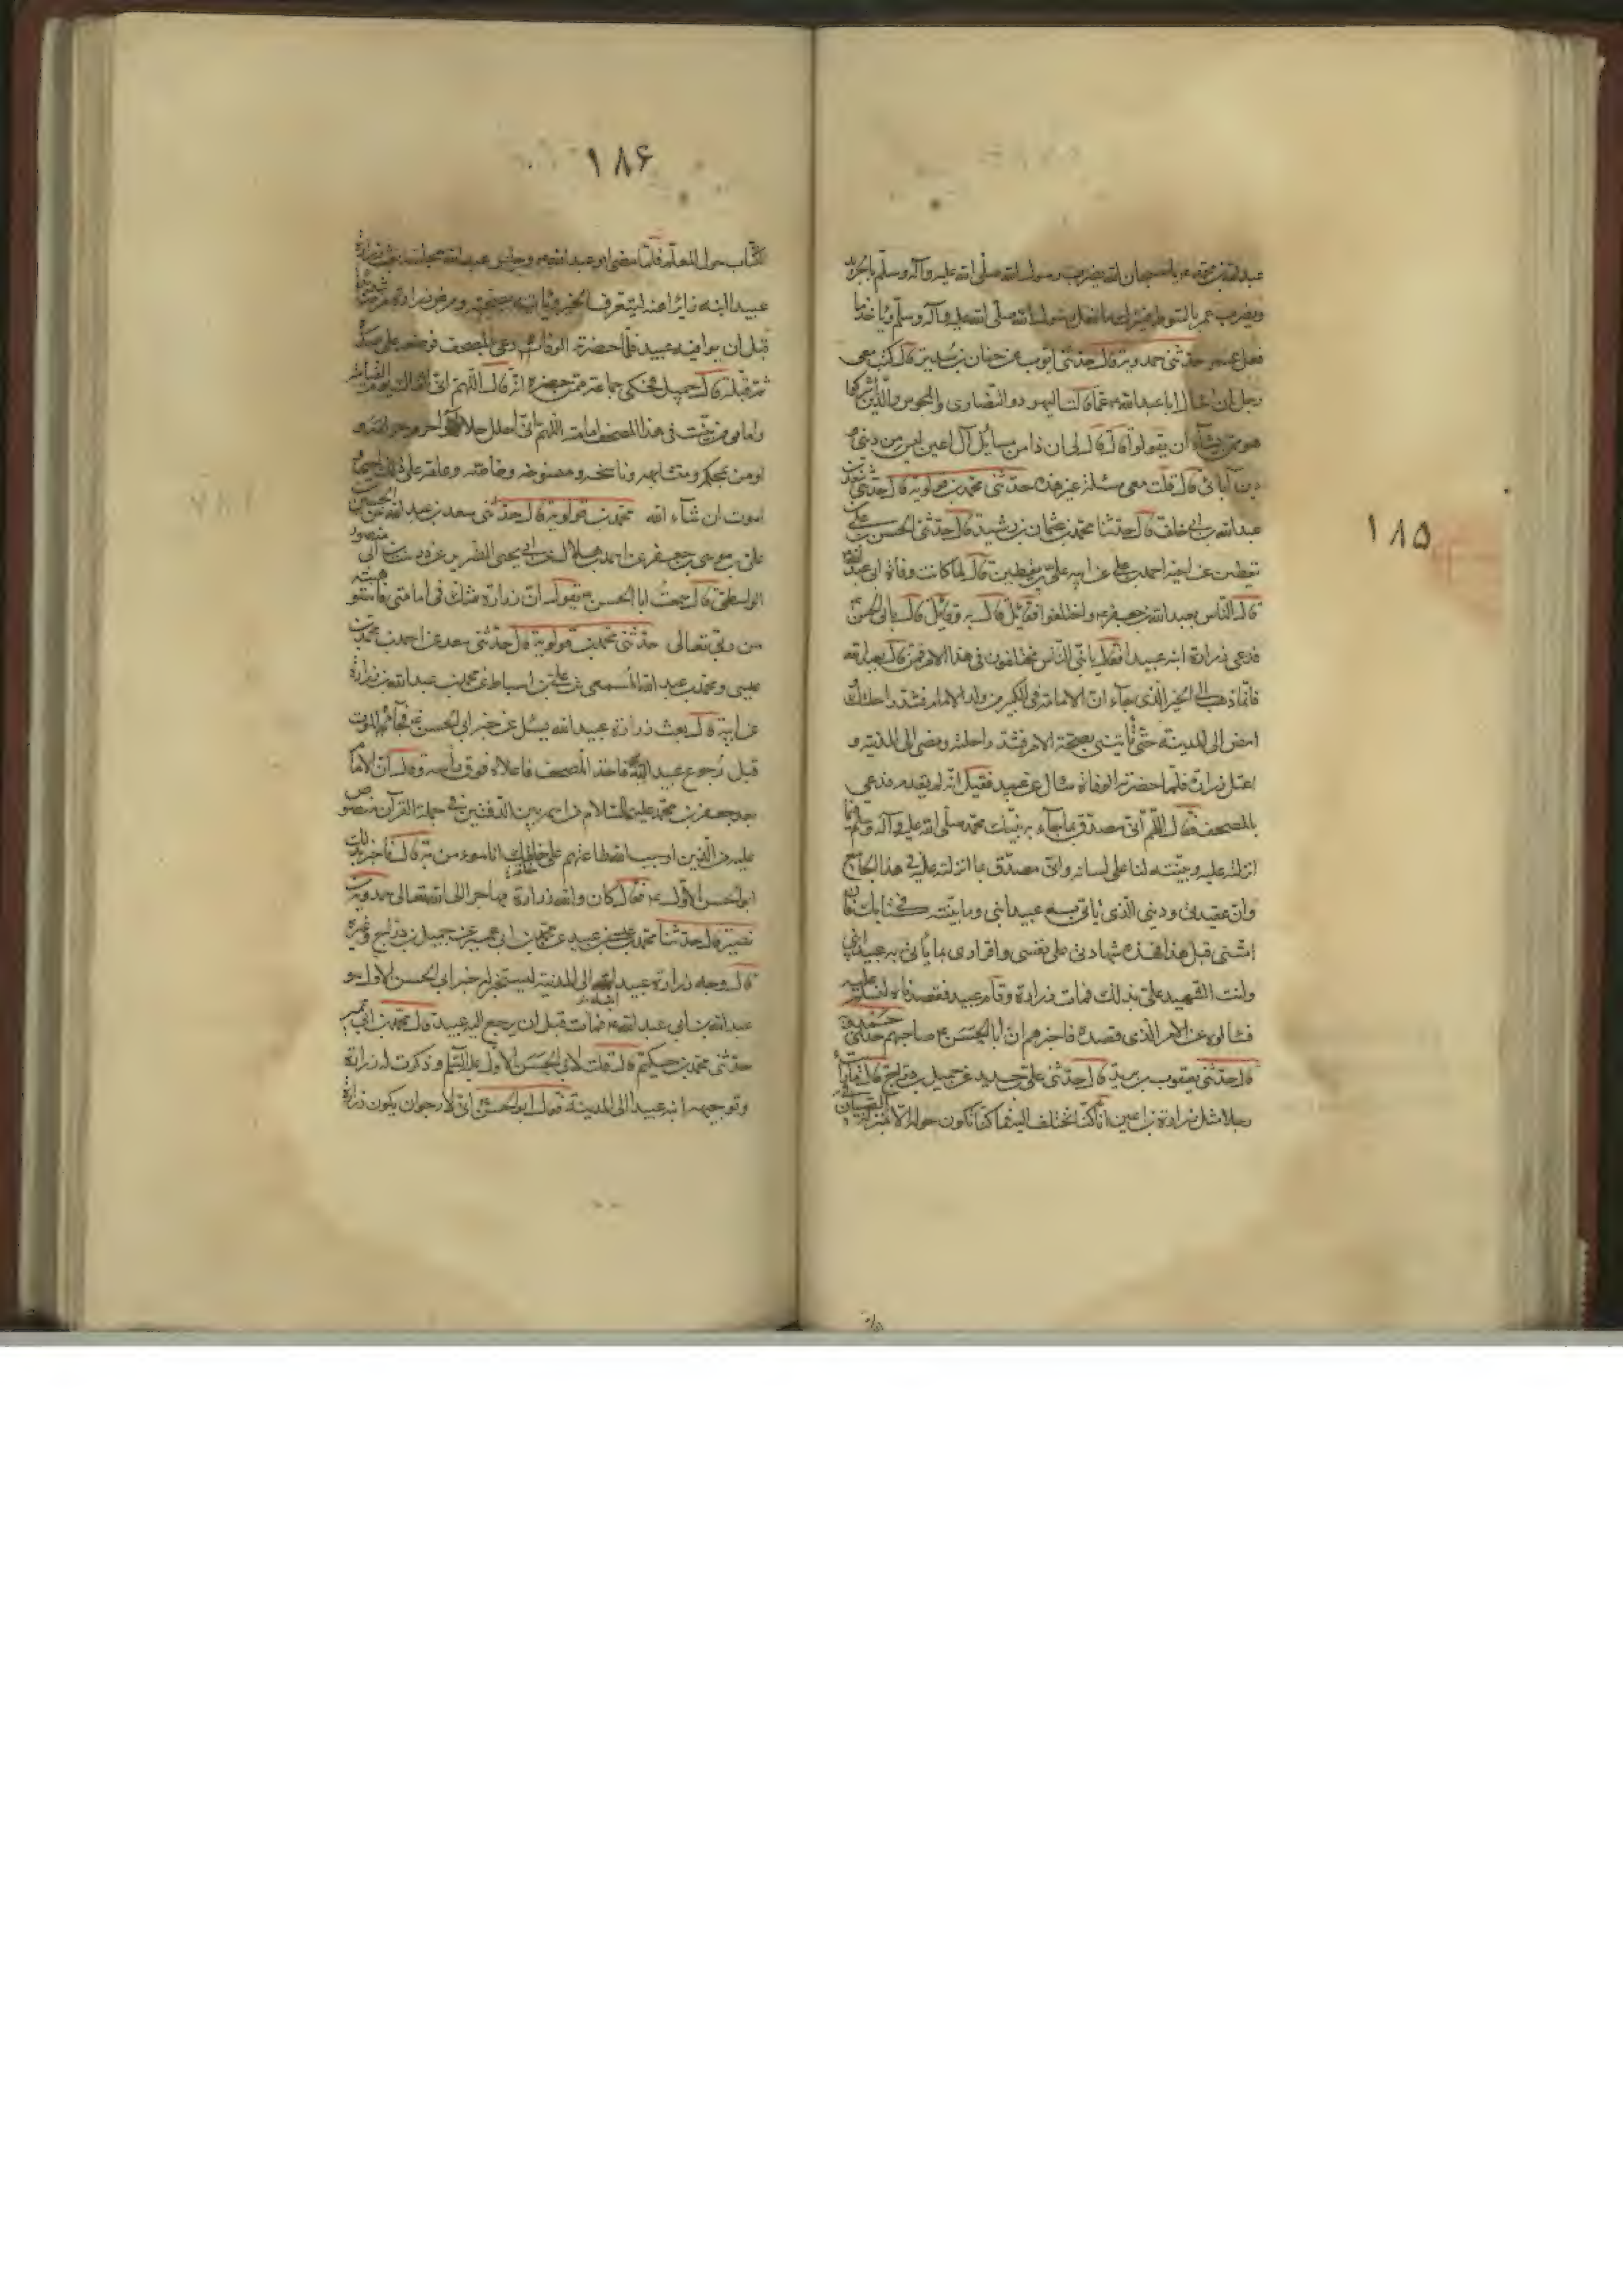 ١٨٥
عبد الله بن محمد يا سبحان الله يضرب رسول الله صلى الله عليه وآله وسلم بالجريد
ويضرب عمر بالسوط ما فعل رسول الله صلى الله عليه وآله وسلم ويأخذ ما
فعل عمر حدثنى حمدويه قال حدثنى ايوب عن حنان بن سدير قال كتب معى
رجل ان اسأل ابا عبد الله ع عما قالت اليهود والنصارى والمجوس والذين اشركوا
هو مما شاء ان يقولوا قال قال لى ان ذا من مسائل آل اعين ليس من دينى ولا
دين آبائى قال قلت معى مسئلة غير هذه حدثنى محمد بن قولويه قال حدثنى سعد بن
عبد الله بن ابى خلف قال حدثنا محمد بن عثمان بن رشيد قال حدثنى الحسن بن على بن
يقطين عن اخيه احمد بن على عن ابيه على بن يقطين قال لما كانت وفاة ابى عبد الله
قال الناس بعبد الله بن جعفر ع واختلفوا فقائل قال به وقائل قال بابى الحسن ع
فدعى زرارة ابنه عبيدا فقال يا بنى الناس مختلفون فى هذا الامر فمن قال بعبد الله
فانما ذهب الى الخبر الذى جاء ان الامامة فى الكبير من ولد الامام فشد راحلتك
امض الى المدينة حتى تأتينى بصحة الامر فشد راحلته ومضى الى المدينة و
اعتل زرارة فلما حضرته الوفاة سأل عن عبيد فقيل انه لم يقدم فدعى
بالمصحف فقال اللهم انى مصدق بما جاء به نبيك محمد صلى الله عليه وآله وسلم فيما
انزلته عليه وبينته لنا على لسانه وانى مصدق بما انزلته عليه فى هذا الجامع
وان عقيدتى ودينى الذى يأتى به عبيد ابنى وما بينته فى كتابك فان
امتنى قبل هذا فهذه شهادتى على نفسى واقرارى بما يأتى به عبيد ابنى
وانت الشهيد على بذلك فمات زرارة وقدم عبيد فقصدناه لنسلم عليه
فسألوه عن الامر الذى قصده فاخبرهم ان ابا الحسن ع صاحبهم حدثنى حمدويه
قال حدثنى يعقوب بن يزيد قال حدثنى على بن حديد عن جميل بن دراج قال ما رأيت
رجلا مثل زرارة بن اعين انا كنا نختلف اليه فما كنا نكون حوله الا بمنزلة الصبيان فى
١٨۶
الكتاب حول المعلم فلما مضى ابو عبد الله ع وجلس عبد الله مجلسه بعث زرارة
عبيدا ابنه زائرا عنه ليتعرف الخبر ويأتيه بصحته ومرض زرارة مرضا شديدا
قبل ان يوافيه عبيد فلما حضرته الوفاة دعى بالمصحف فوضعه على صدره
ثم قبله قال جميل فحكى جماعة ممن حضره انه قال اللهم انى القاك يوم القيامة
وامامى من بينت فى هذا المصحف امامته اللهم انى احلل حلاله واحرم حرامه و
اومن بمحكمه ومتشابهه وناسخه ومنسوخه وخاصه وعامه على ذلك احيى و
اموت ان شاء الله محمد بن قولويه قال حدثنى سعد بن عبد الله عن الحسن بن
على بن موسى بن جعفر عن احمد بن هلال عن ابى يحيى الضرير عن درست بن ابى منصور
الواسطى قال سمعت ابا الحسن ع يقول ان زرارة شك فى امامتى فاستوهبته
من ربى تعالى حدثنى محمد بن قولويه قال حدثنى سعد عن احمد بن محمد بن
عيسى ومحمد بن عبد الله المسمعى عن على بن اسباط عن محمد بن عبد الله بن زرارة
عن ابيه قال بعث زرارة عبيد الله يسئل عن خبر ابى الحسن ع فجاءه الموت
قبل رجوع عبيد الله فاخذ المصحف فاعلاه فوق رأسه وقال ان الامام
بعد جعفر بن محمد عليهما السلام من اسمه بين الدفتين فى جملة القرآن منصوص
عليه من الذين اوجب الله طاعتهم على خلقه انا مؤمن به قال فاخبر بذلك
ابو الحسن الاول ع فقال كان والله زرارة مهاجرا الى الله تعالى حمدويه بن
نصير قال حدثنا محمد بن عيسى بن عبيد عن محمد بن ابى عمير عن جميل بن دراج وغيره
قال وجه زرارة عبيدا ابنه الى المدينة ليستخبر له خبر ابى الحسن الاول و
عبد الله بن ابى عبد الله ع فمات قبل ان يرجع اليه عبيد قال محمد بن ابى عمير
حدثنى محمد بن حكيم قال قلت لابى الحسن الاول عليه السلم وذكرت له زرارة
وتوجيهه ابنه عبيدا الى المدينة فقال ابو الحسن انى لارجو ان يكون زرارة